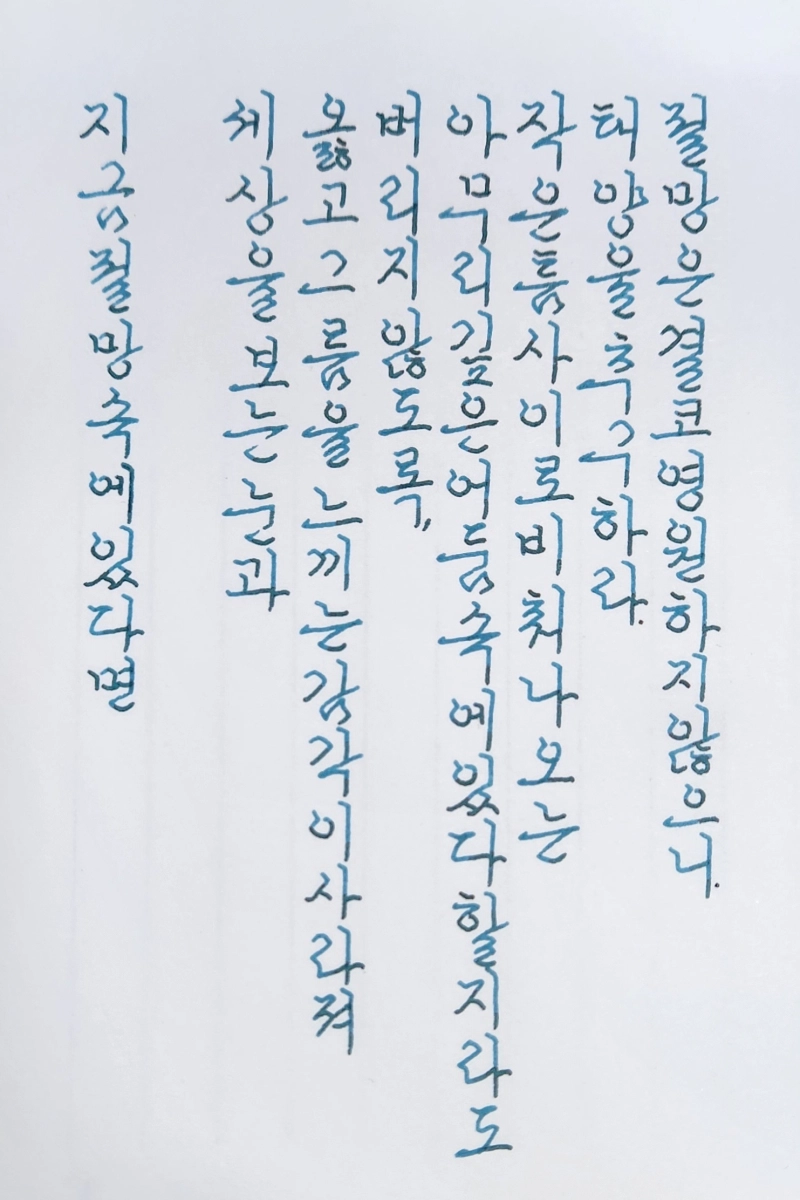 지금 절망 속에 있다면
세상을 보는 눈과
옳고 그름을 느끼는 감각이 사라져
버리지 않도록,
아무리 깊은 어둠 속에 있다 할지라도
작은 틈 사이로 비춰 나오는
태양을 추구하라.
절망은 결코 영원하지 않으니.